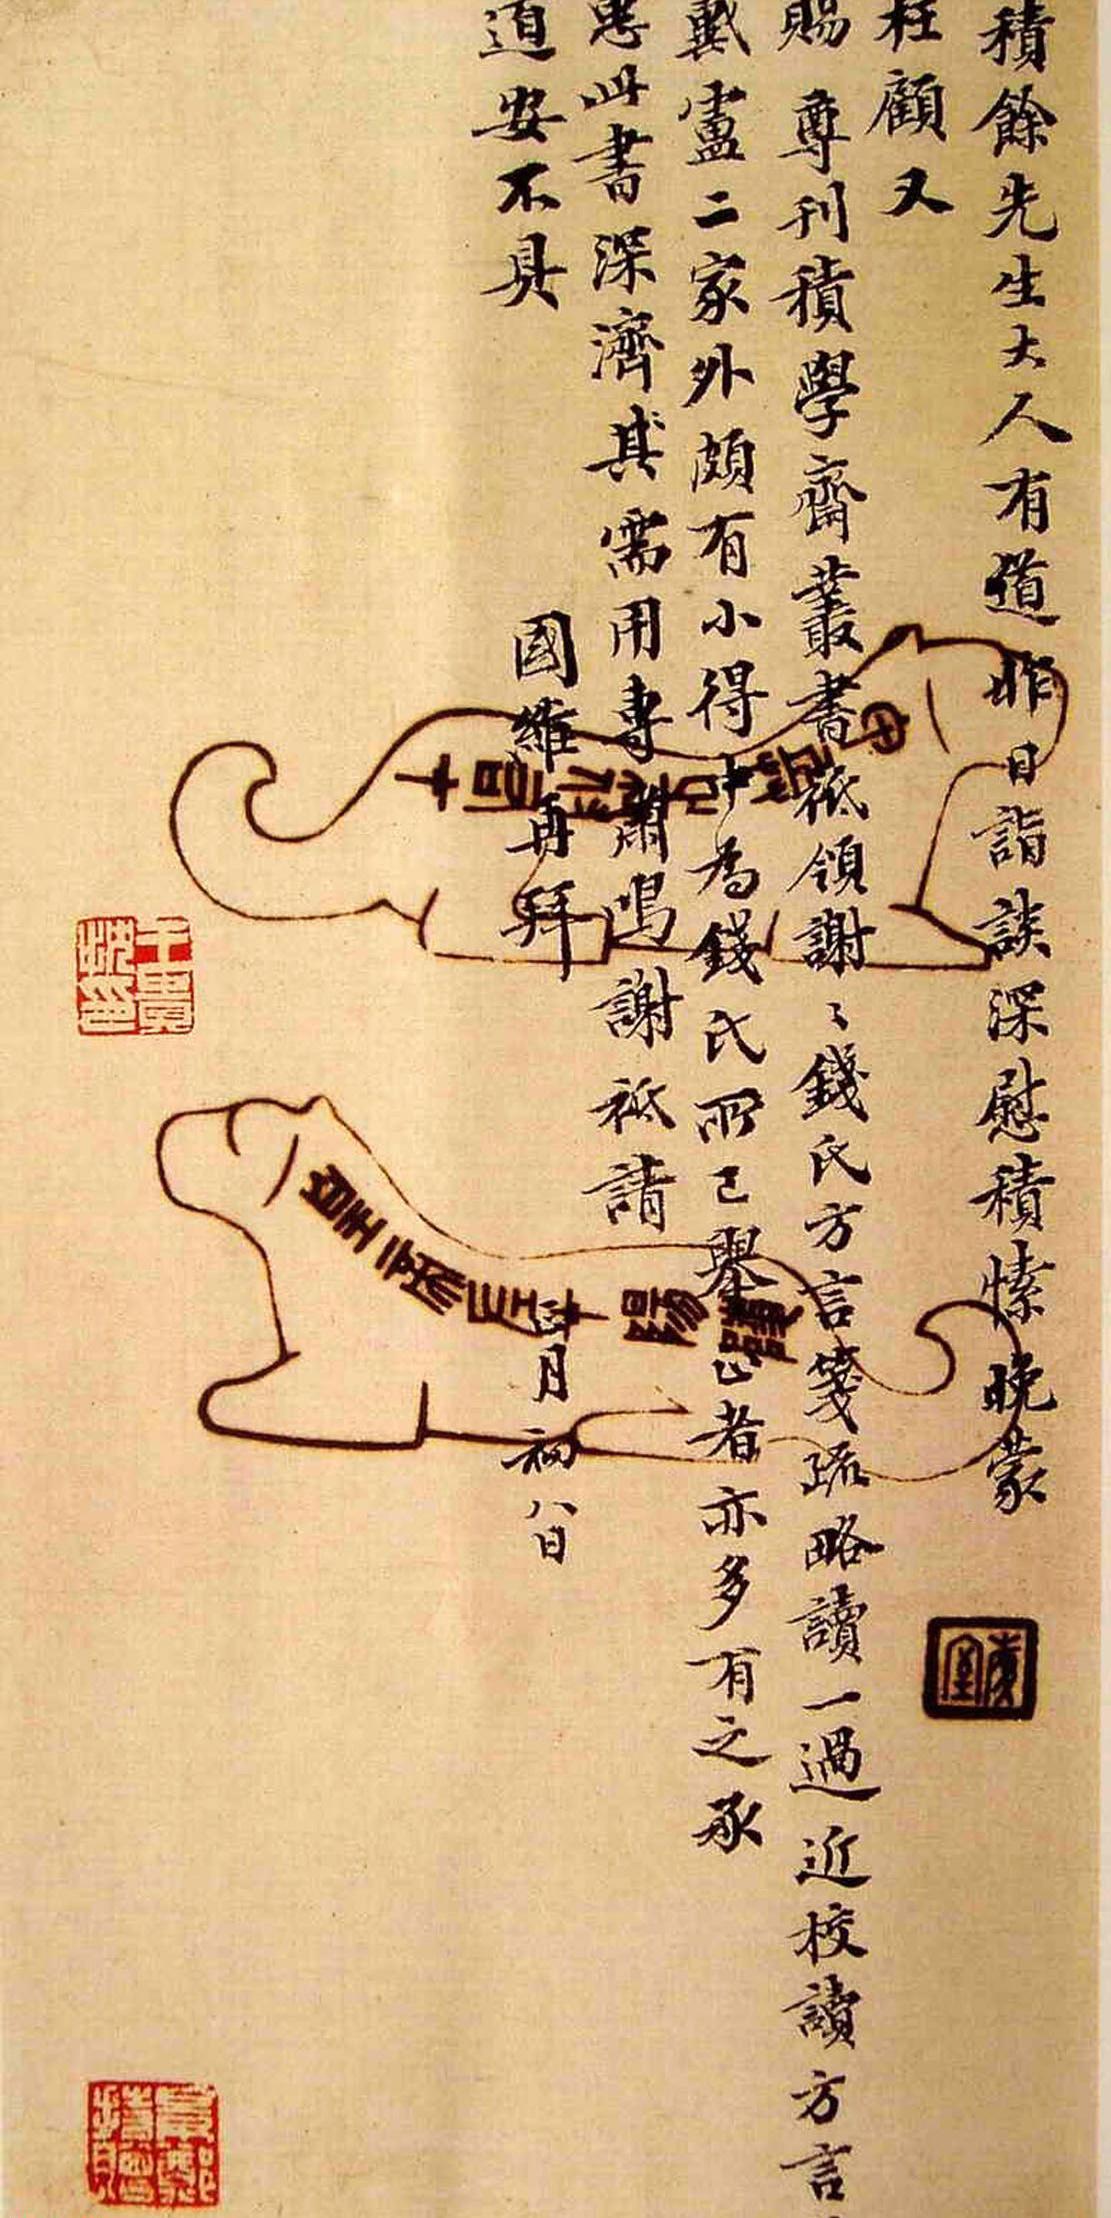 積餘先生大人有道昨日詣談深慰積愫晚蒙
枉顧又
賜尊刊積學齋叢書祗領謝〻錢氏方言箋疏略讀一過近校讀方言
戴盧二家外頗有小得中為錢氏所已舉者亦多有之承
惠此書深濟其需用專肅鳴謝祗請
道安不具
國維再拜
四月初八日
王貴忱印